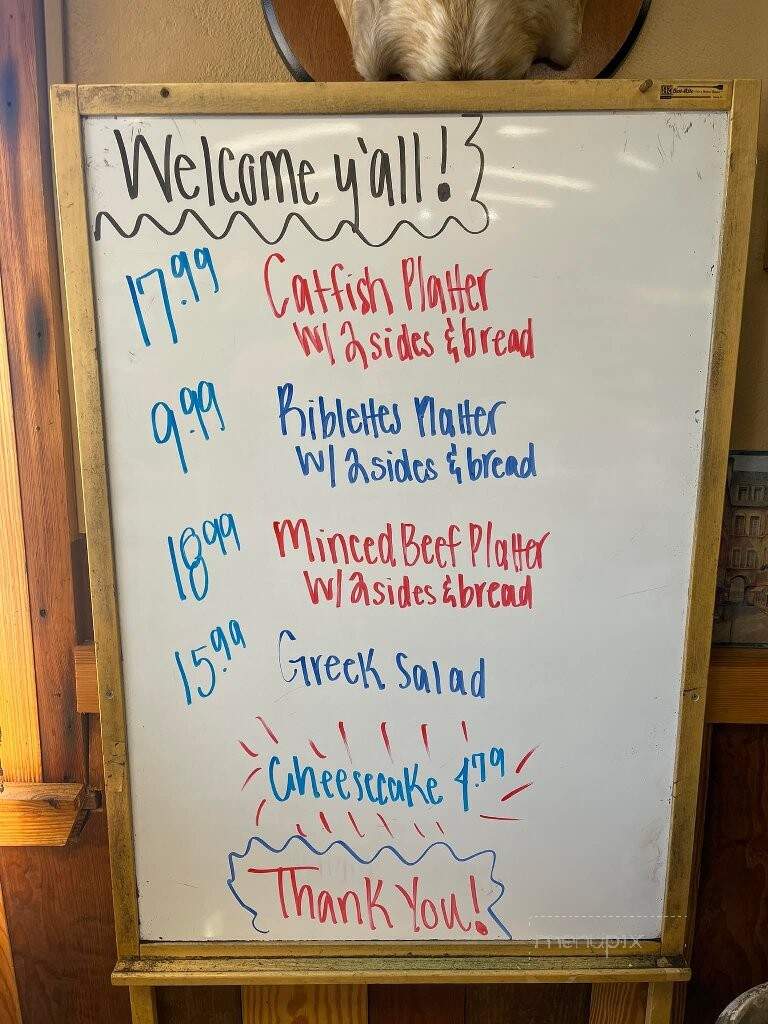 Welcome y'all!
17.99 Catfish Platter
w/ 2 sides & bread
9.99 Riblettes Platter
w/ 2 sides & bread
18.99 Minced Beef Platter
w/ 2 sides & bread
15.99 Greek Salad
Cheesecake 4.79
Thank You!
menupix